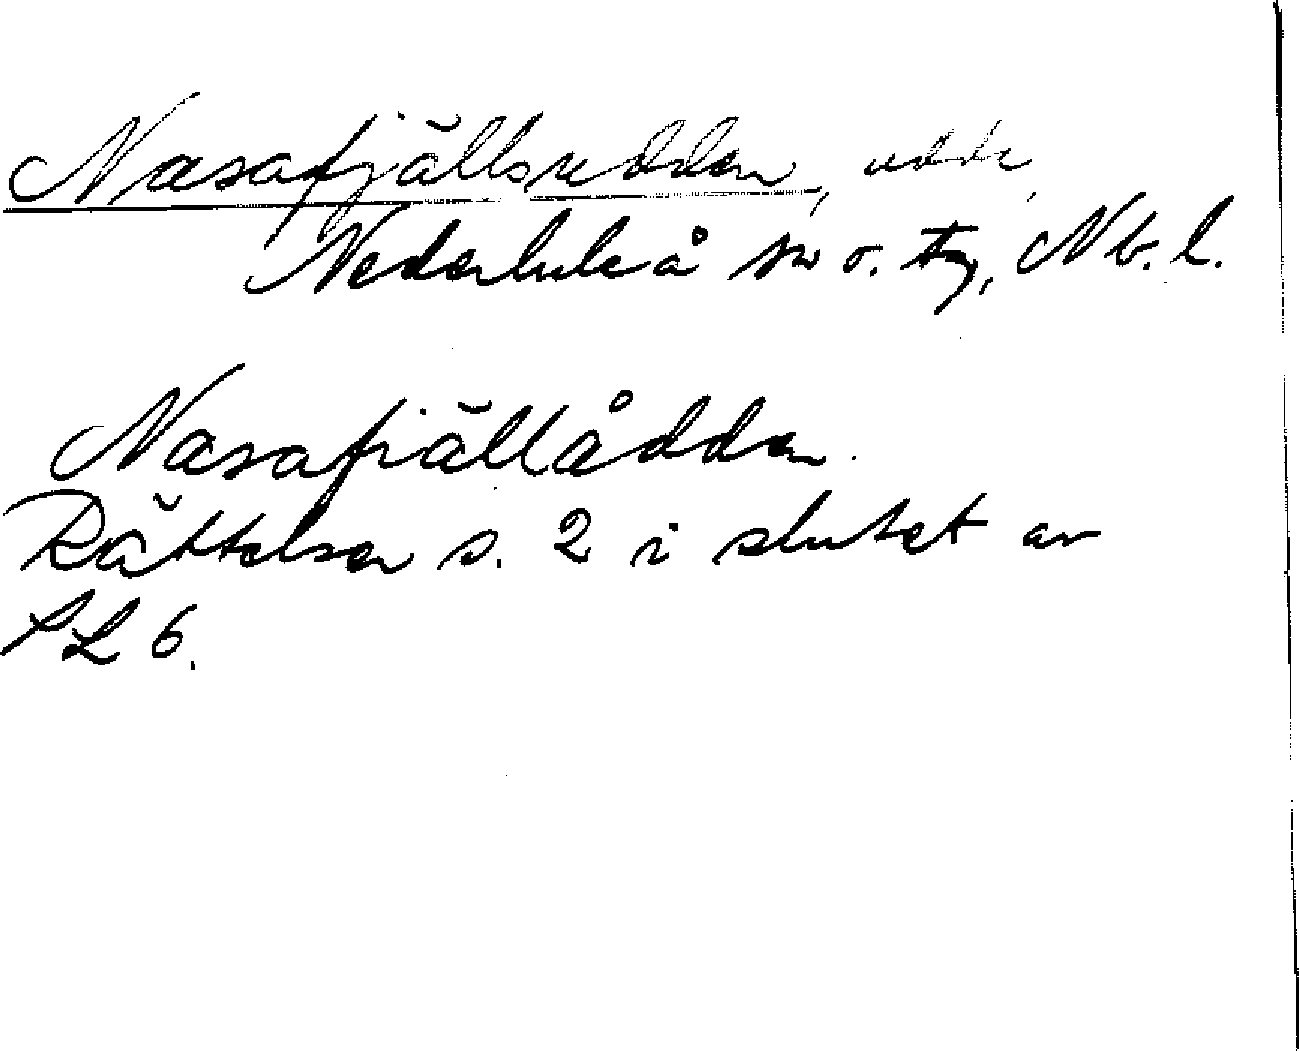 Nasafjällsudden, udde,
Nederluleå sn o. tg, Nb. l.
Nasafiällådden
Rättelser s. 2 i slutet av
SL 6.